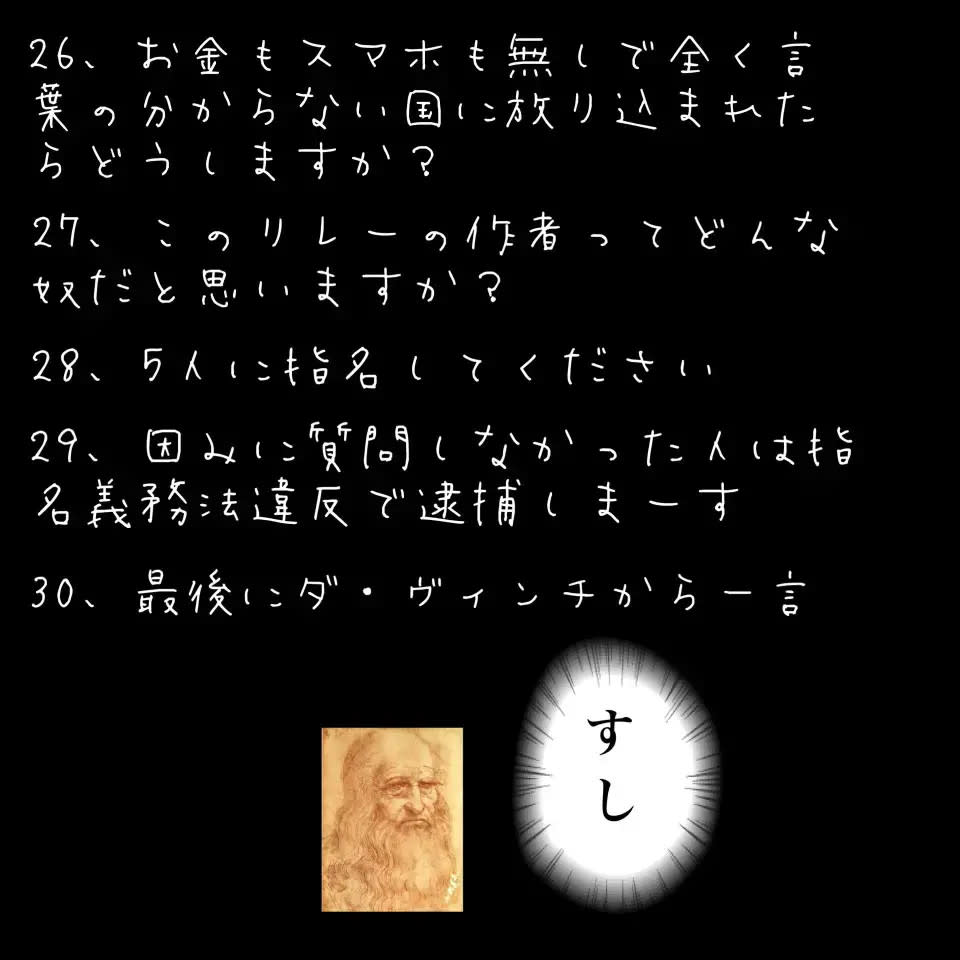 26、お金もスマホも無しで全く言
葉の分からない国に放り込まれた
らどうしますか？
27、このリレーの作者ってどんな
奴だと思いますか？
28、5人に指名してください
29、因みに質問しなかった人は指
名義務法違反で逮捕しまーす
30、最後にダ・ヴィンチから一言
すし